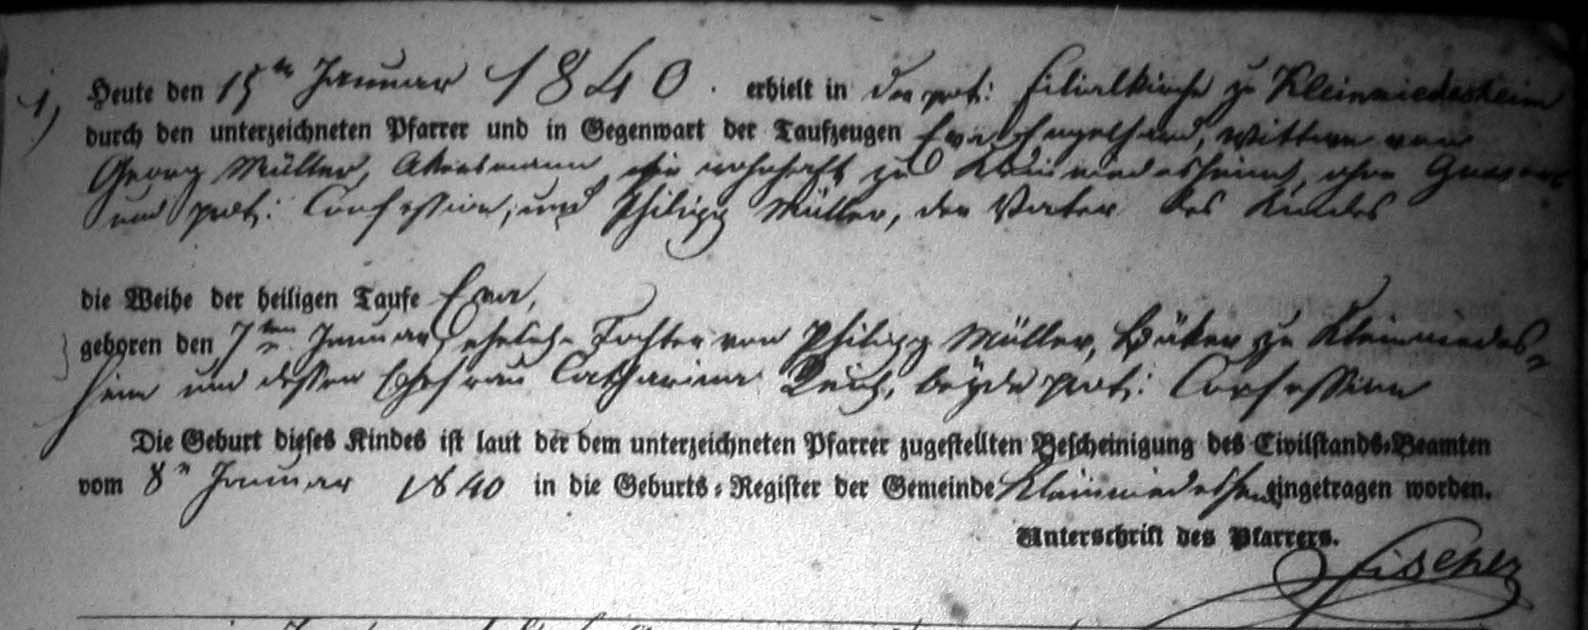 1) Heute den 15ten Januar 1840. erhielt in der prot: Filialkirche zu Kleinniedesheim
durch den unterzeichneten Pfarrer und in Gegenwart der Taufzeugen Eva Engelhard, Wittwe von
Georg Müller, Akersmann, sie wohnhaft zu Kleinniedesheim, ohne Gewerb
und prot: Confession, und Philipp Müller, der Vater des Kindes
die Weihe der heiligen Taufe Eva,
geboren den 7ten Januar, ehelich. Tochter von Philipp Müller, Bäker zu Kleinniedes-
heim und dessen Ehefrau Catharina beyde prot: Confession
Die Geburt dieses Kindes ist laut der dem unterzeichneten Pfarrer zugestellten Bescheinigung des Civilstands-Beamten
vom 8n Januar 1840 in die Geburts-Register der Gemeinde Kleinniedesheim eingetragen worden.
Unterschrift des Pfarrers.
Fischer